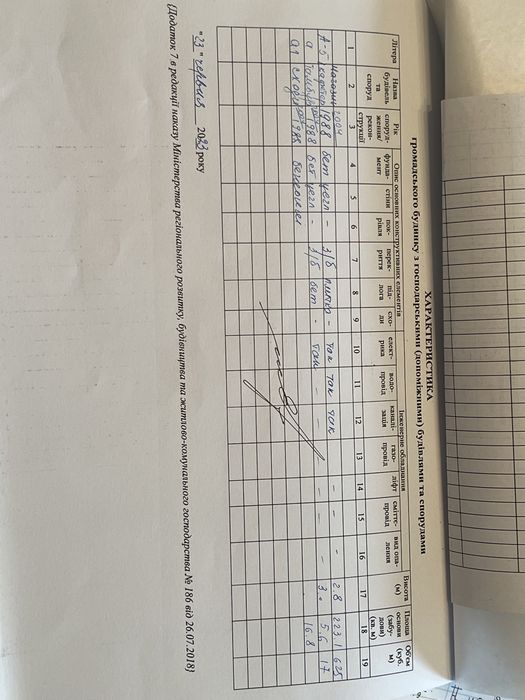 ХАРАКТЕРИСТИКА
громадського будинку з господарськими (допоміжними) будівлями та спорудами
Літера
Назва будівель та споруд
Рік спорудження/ реконструкції
Опис основних конструктивних елементів
Інженерне обладнання
Висота (м)
Площа основи (забудови) (кв. м)
Об'єм (куб. м)
фундамент стіни покрівля перекриття підлога сходи електрика водопровід каналізація газопровід ліфт сміттєпровід вид опалення
1 2 3 4 5 6 7 8 9 10 11 12 13 14 15 16 17 18 19
Магазин
А-1 1988 бет цегл - з/б плитка - так так так - - - 2.8 223.1 625
а тамбур 1988 бет цегл - з/б бет - так - - - - - 3.0 5.6 17
а1 сходи 1988 бетонні 16.8
"23" червня 2023 року
(Додаток 7 в редакції наказу Міністерства регіонального розвитку, будівництва та житлово-комунального господарства № 186 від 26.07.2018)